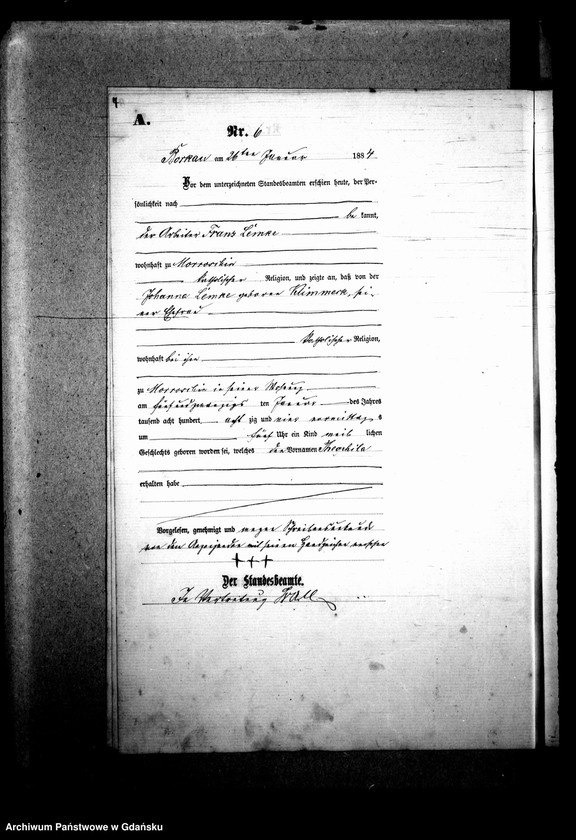 A.
Nr. 6
Borkau am 26ten Januar 1884
Vor dem unterzeichneten Standesbeamten erschien heute, der Per-
sönlichkeit nach
bekannt,
der Arbeiter Franz Lemke
wohnhaft zu
katholischer Religion, und zeigte an, daß von der
Johanna Lemke geborene Klimmeck, sei-
ner Ehefrau
katholischer Religion,
wohnhaft bei ihm
zu in seiner Wohnung
am fünfundzwanzigsten Januar des Jahres
tausend acht hundert achtzig und vier vormittags
um fünf Uhr ein Kind weiblichen
Geschlechts geboren worden sei, welches den Vornamen
erhalten habe
Vorgelesen, genehmigt und wegen Schreibensunkunde
von dem Anzeigenden mit seinem Handzeichen versehen
+++
Der Standesbeamte.
In Vertretung
Archiwum Państwowe w Gdańsku